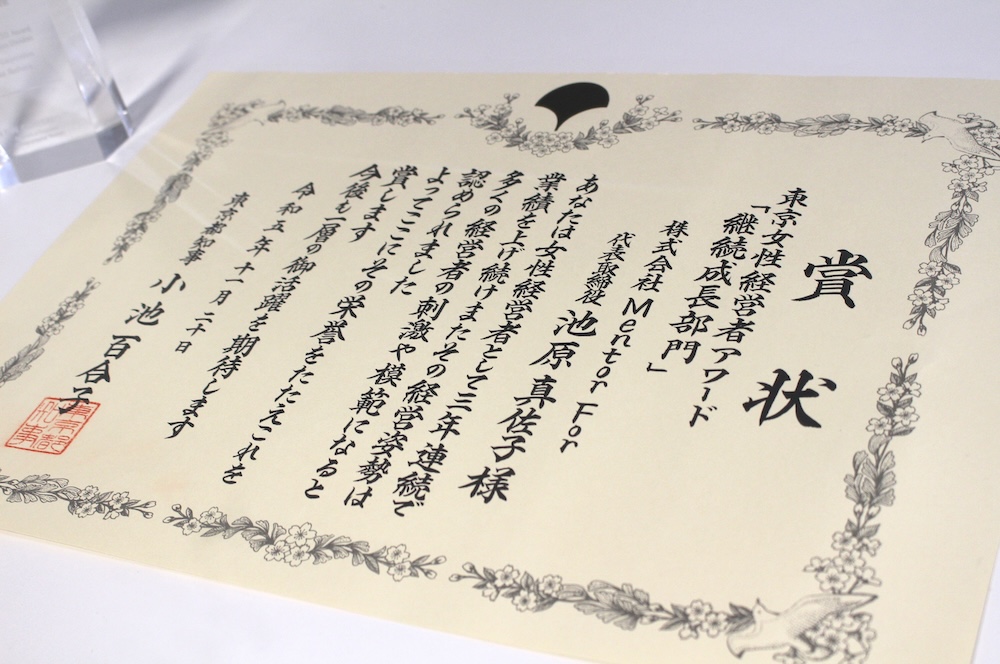 賞状
東京女性経営者アワード
「継続成長部門」
株式会社 Mentor For
代表取締役 池原真佐子様
あなたは女性経営者として三年連続で
業績を上げ続けまたその経営姿勢は
多くの経営者の刺激や模範になると
認められました
よってここにその栄誉をたたえこれを
賞します
今後も一層の御活躍を期待します
令和五年十一月二十日
東京都知事 小池百合子